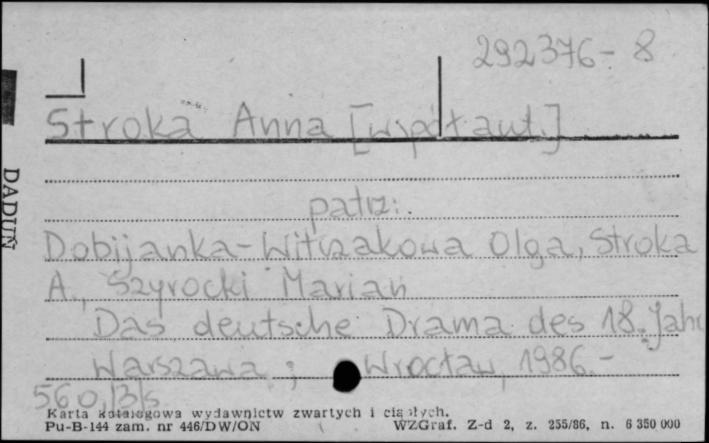 292376-8
Stroka Anna [współaut.]
DADUŃ
patrz:
Dobijanka-Witczakowa Olga, Stroka
A., Szyrocki Marian
Das deutsche Drama des 18. Jahr
Warszawa ; Wrocław, 1986.-
560,/3/s
Karta katalogowa wydawnictw zwartych i ciągłych.
Pu-B-144 zam. nr 446/DW/ON WZGraf. Z-d 2, z. 255/86, n. 6 350 000